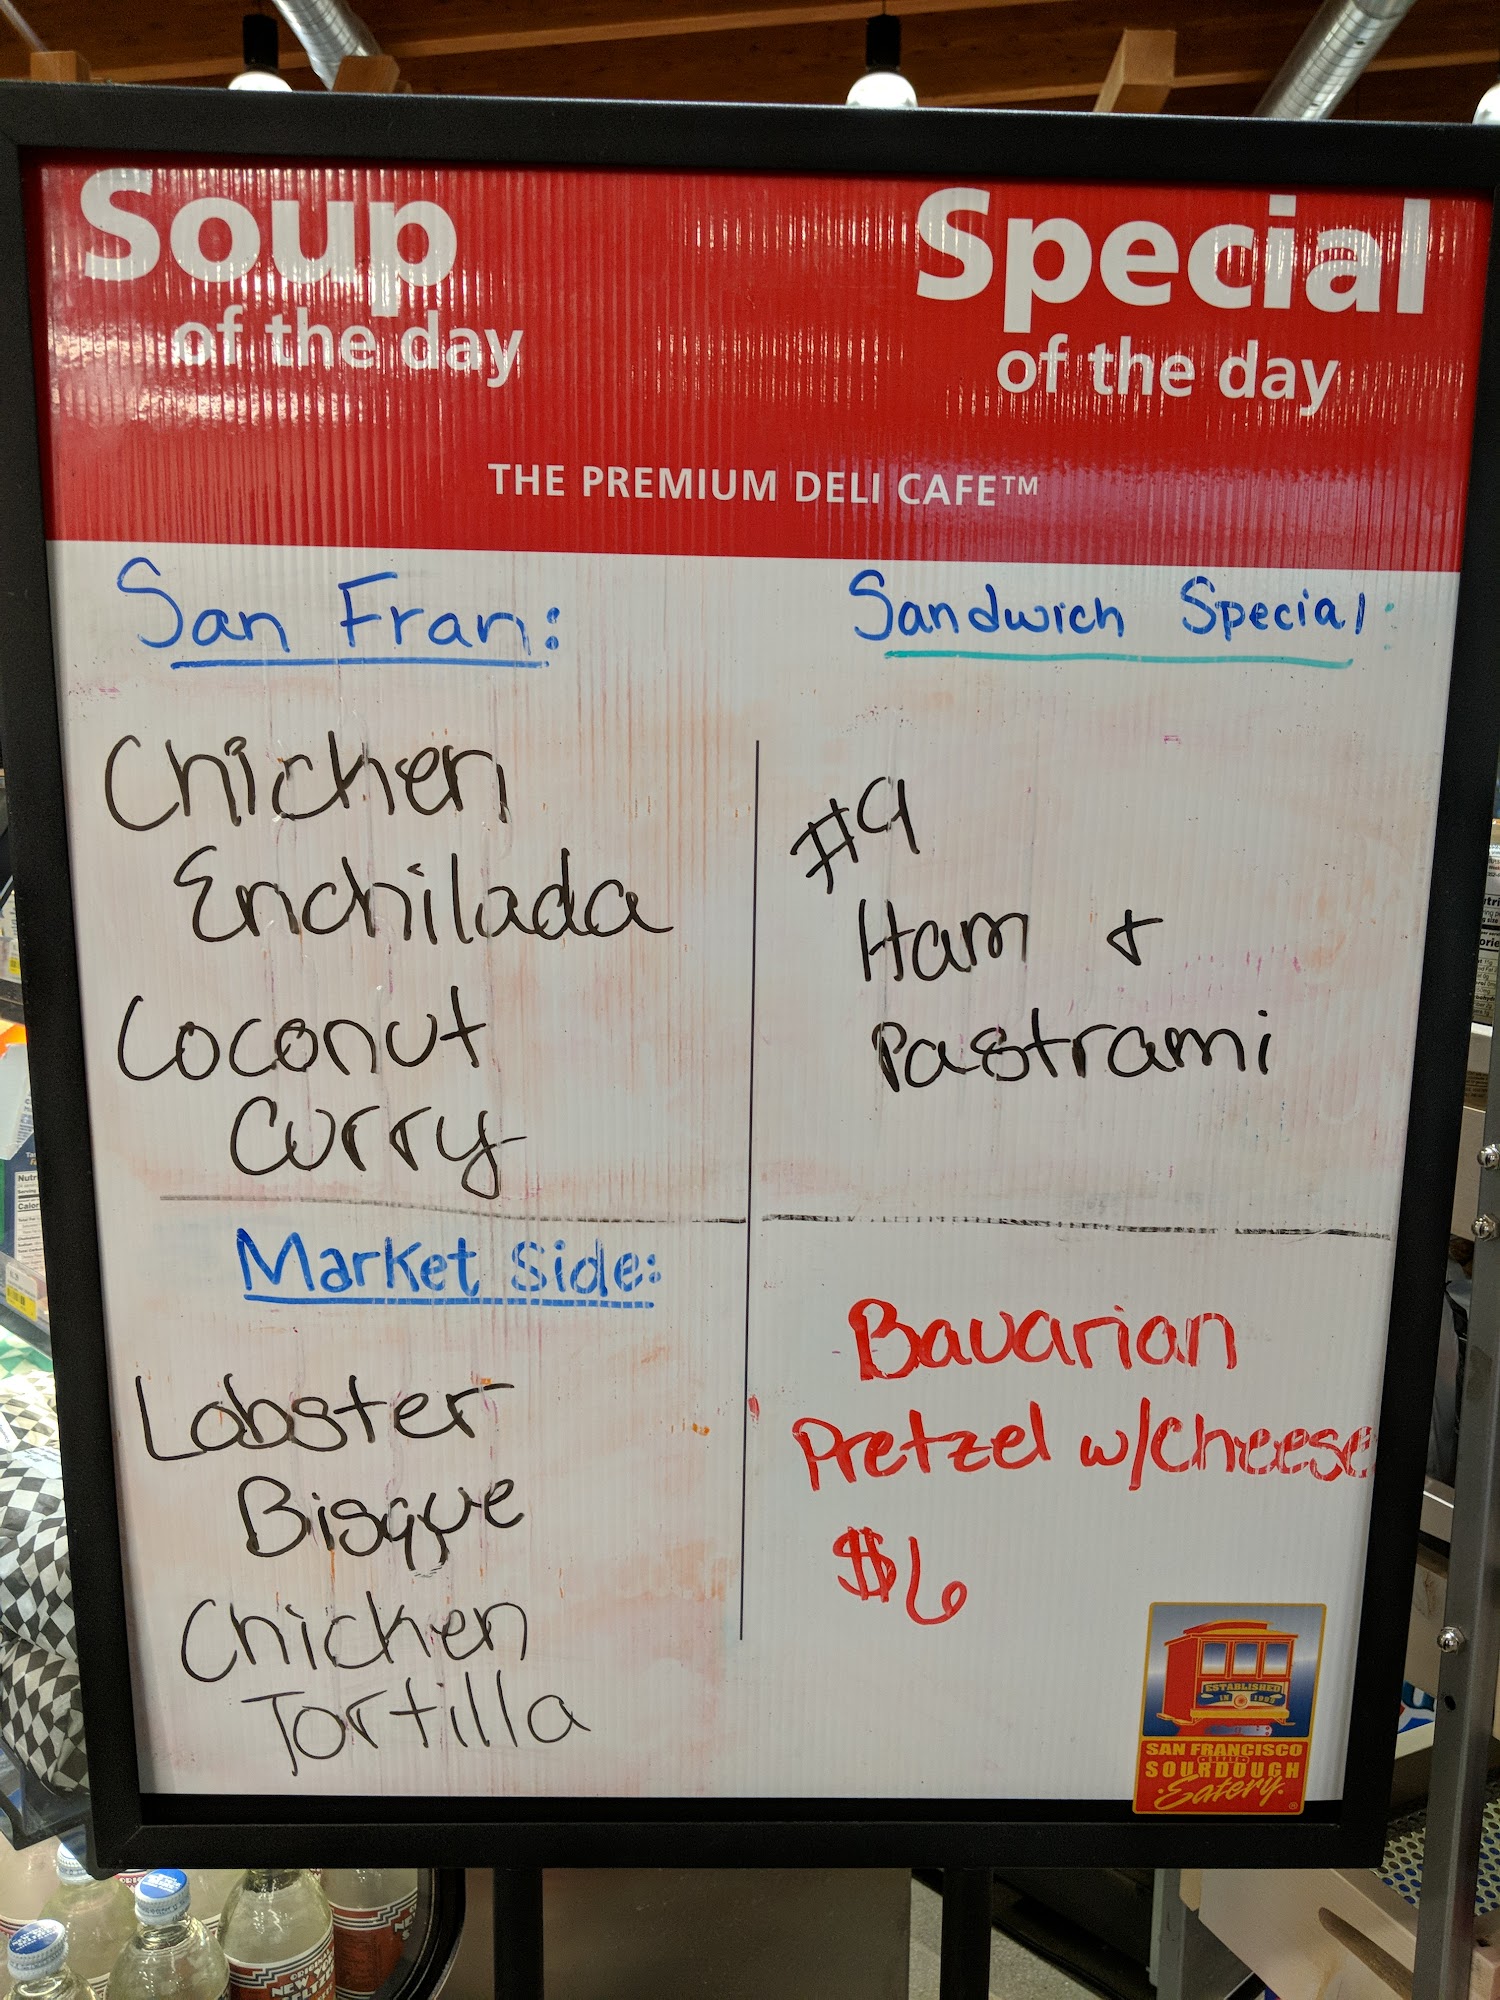 Soup
of the day
Special
of the day
THE PREMIUM DELI CAFE™
San Fran:
Chicken
Enchilada
Coconut
Curry
Market Side:
Lobster
Bisque
Chicken
Tortilla
Sandwich Special:
#9
Ham &
Pastrami
Bavarian
Pretzel w/Cheese
$6
ESTABLISHED
IN
SAN FRANCISCO
STYLE
SOURDOUGH
Eatery.
®
NEW YORK
SELTZER